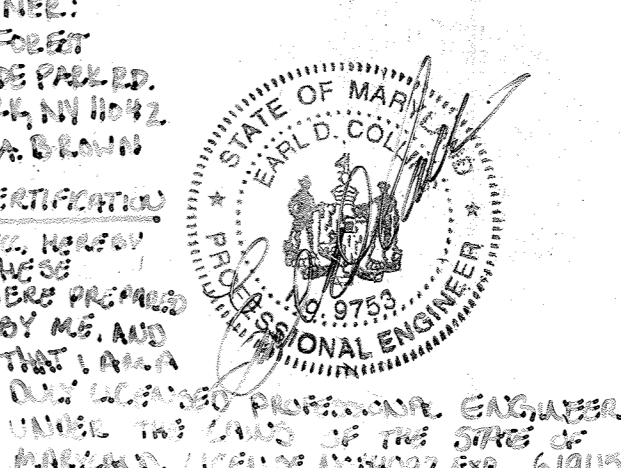 NER:
FOREST
DE PARK RD.
K, NY 11042
A. BROWN
ERTIFICATION
HEREBY
HESE
ERE PREPARED
BY ME, AND
THAT I AM A
DULY LICENSED PROFESSIONAL ENGINEER
UNDER THE LAWS OF THE STATE OF
MARYLAND, LICENSE EXP.
STATE OF MARYLAND
EARL D.
No. 9753
PROFESSIONAL ENGINEER